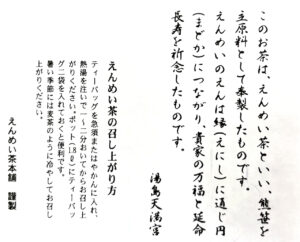 このお茶は、えんめい茶といい、熊笹を
主原料として奉製したものです。
えんめいのえんは縁(えにし)に通じ円
(まどか)につながり、貴家の万福と延命
長寿を祈念したものです。
湯島天満宮
えんめい茶の召し上がり方
ティーバッグを急須またはやかんに入れ、
熱湯を注いで一〜二分おいてからお召し上
がりください。ポット(1.8ℓ)にティーバッ
グ二袋を入れておくと便利です。
暑い季節には麦茶のように冷やしてお召し
上がりください。
えんめい茶本舗 謹製